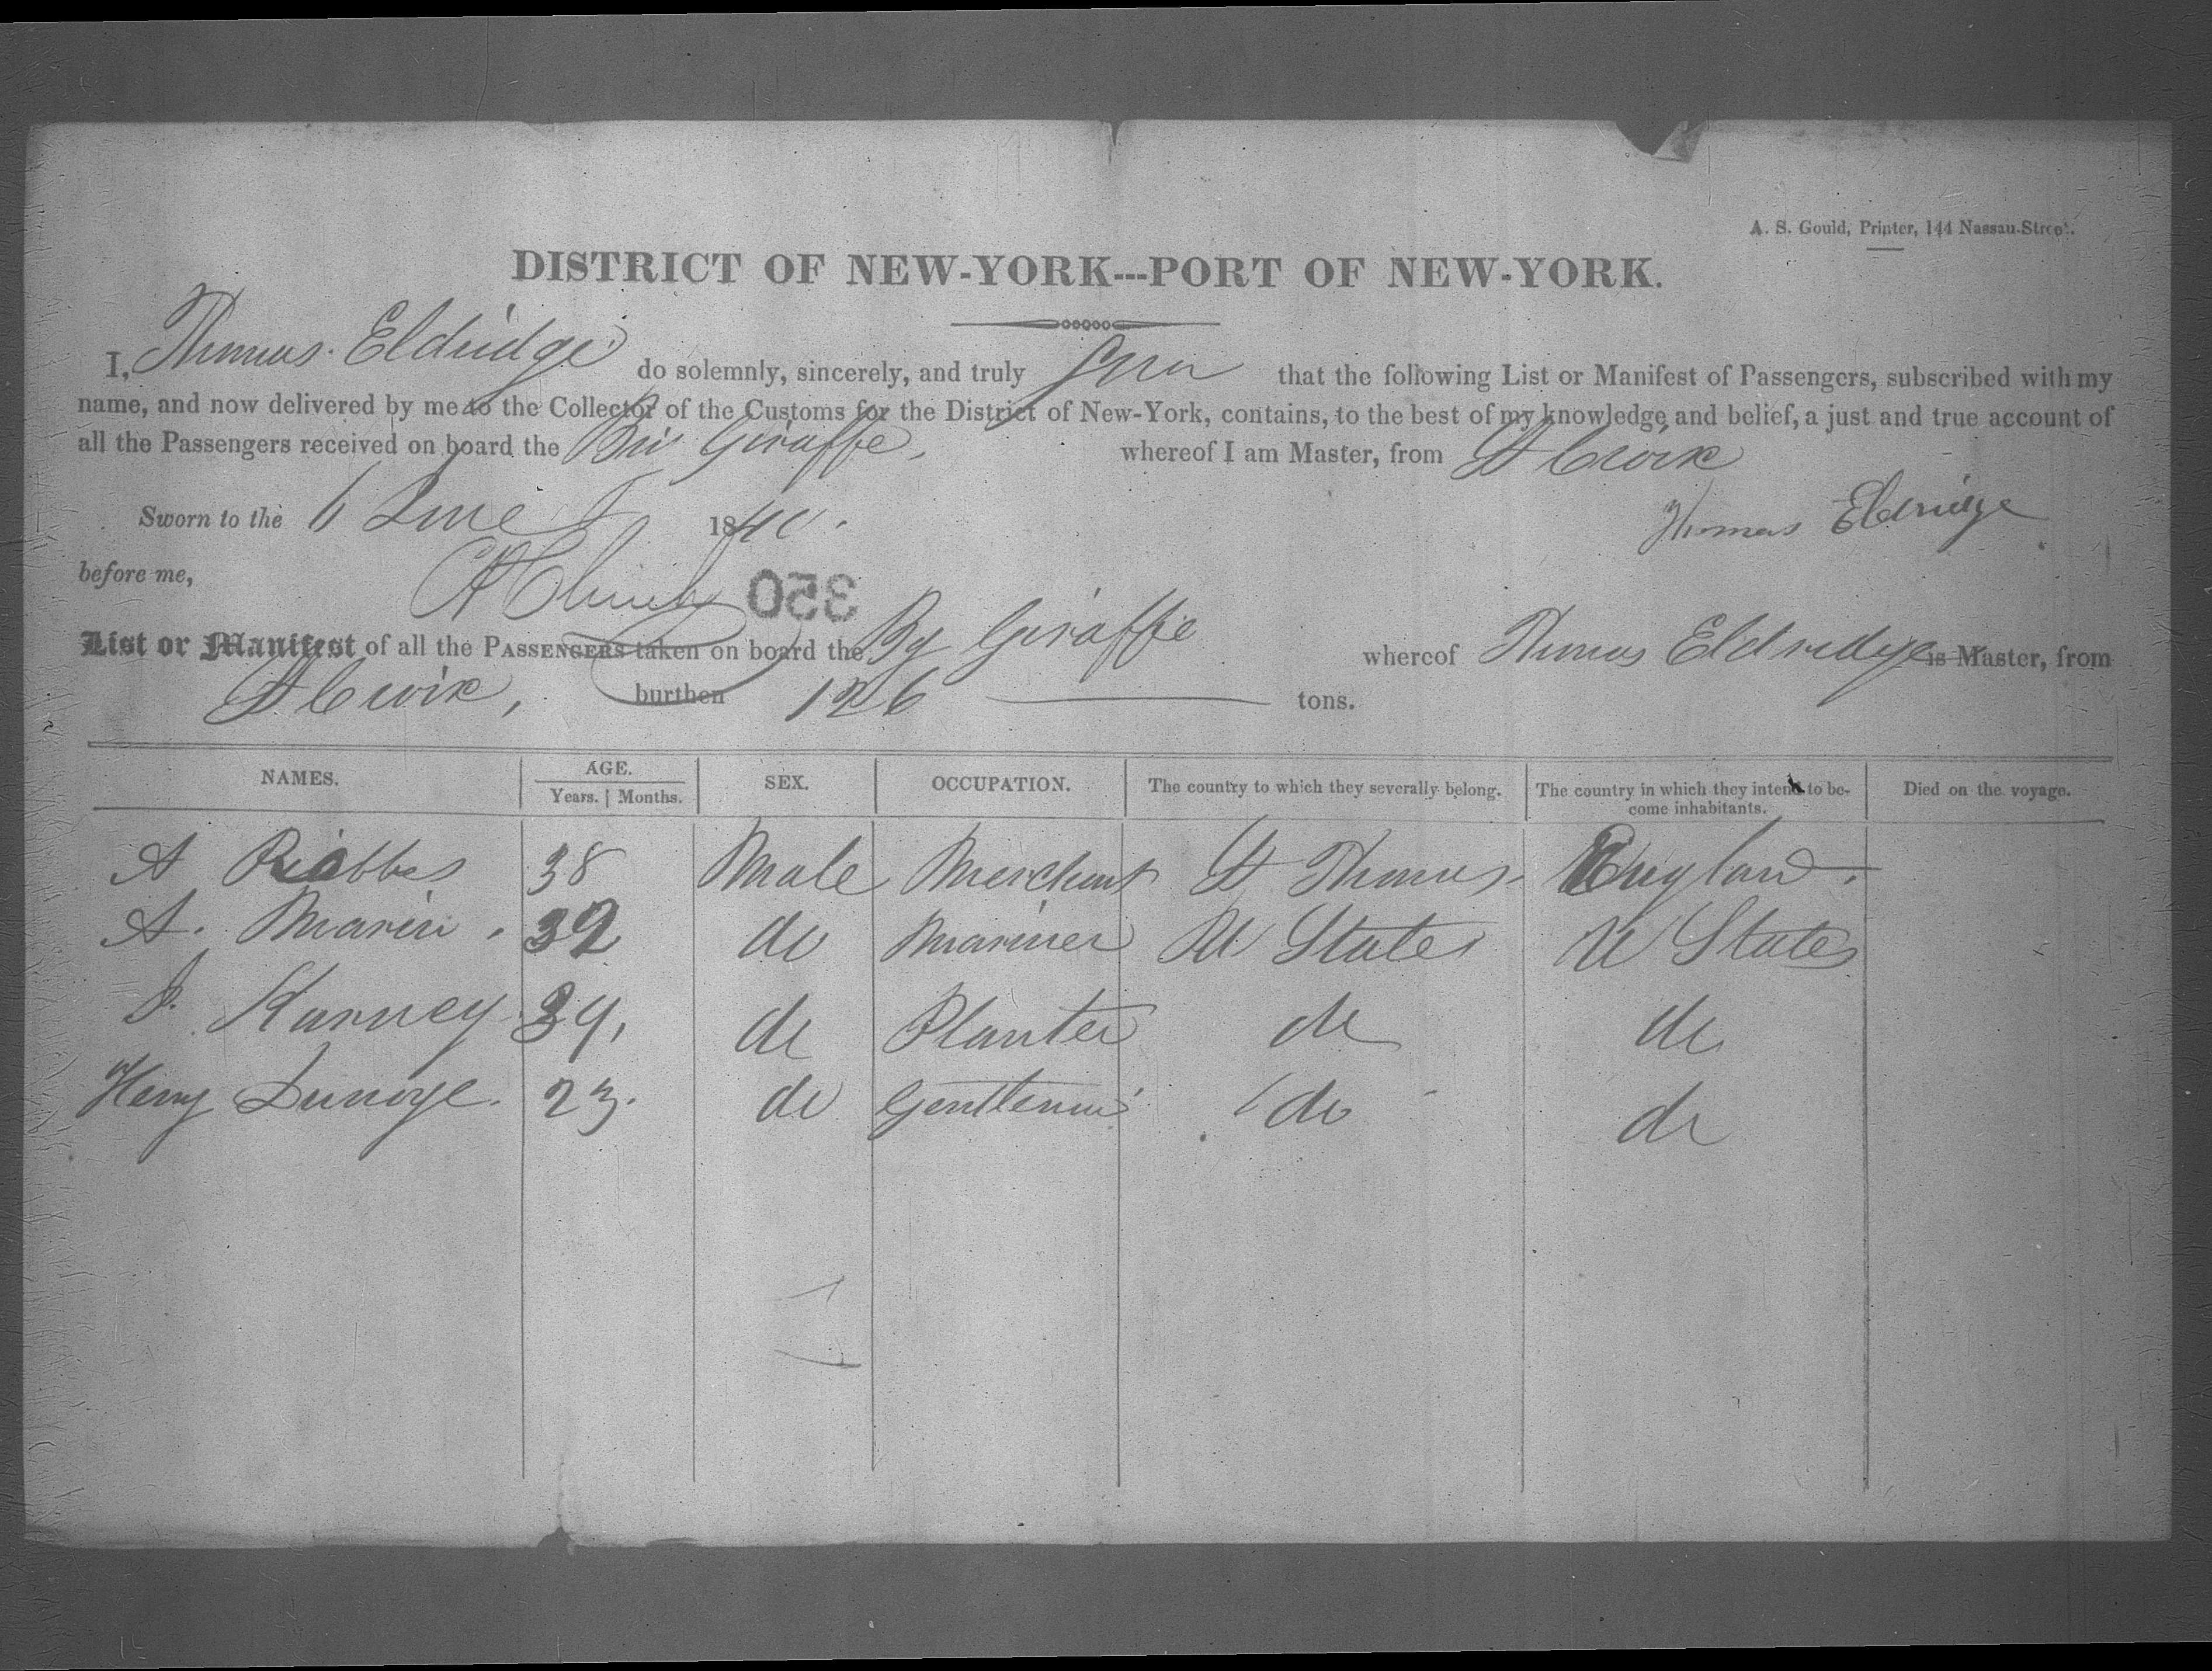 A. S. Gould, Printer, 144 Nassau-Street.
DISTRICT OF NEW-YORK---PORT OF NEW-YORK.
I, Thomas Eldridge do solemnly, sincerely, and truly that the following List or Manifest of Passengers, subscribed with my
name, and now delivered by me to the Collector of the Customs for the District of New-York, contains, to the best of my knowledge and belief, a just and true account of
all the Passengers received on board the Giraffe, whereof I am Master, from St Croix
Sworn to the 6 June 1840.
Thomas Eldridge
before me,
350
List or Manifest of all the PASSENGERS taken on board the Bg Giraffe whereof Thomas Eldridge is Master, from
St Croix, burthen 126 tons.
NAMES. AGE. Years. | Months. SEX. OCCUPATION. The country to which they severally belong. The country in which they intend to become inhabitants. Died on the voyage.
A 38 Male Merchant St Thomas England.
A. Marin. 32 do Mariner U States U States
J. Kanney 34, do Planter do do
Henry 23. do Gentleman do do